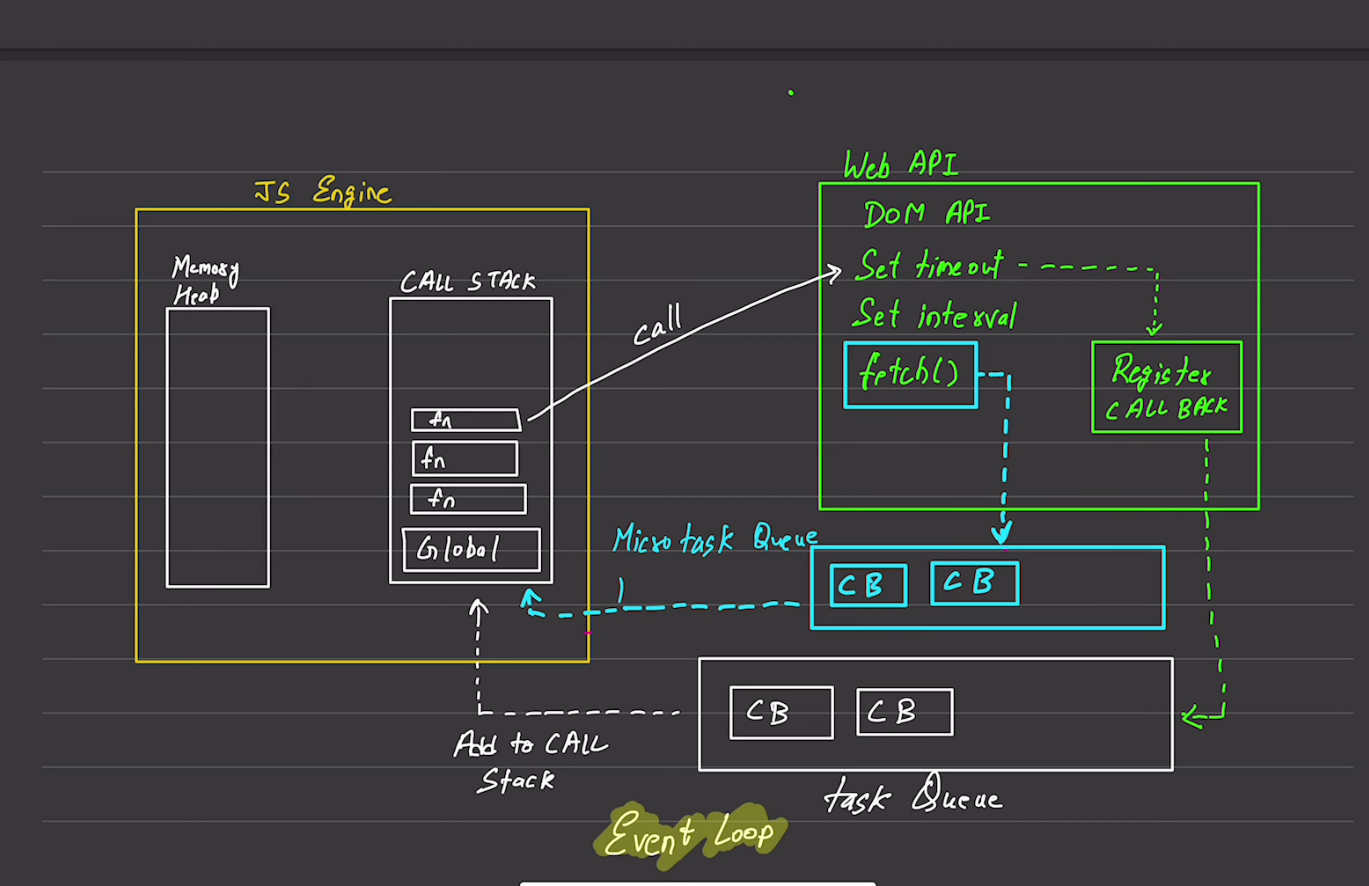 JS Engine
Memory
Heap
CALL STACK
fn
fn
fn
Global
call
Web API
DOM API
Set timeout
Set interval
fetch()
Register
CALL BACK
Microtask Queue
CB
CB
CB
CB
Add to CALL
Stack
task Queue
Event Loop